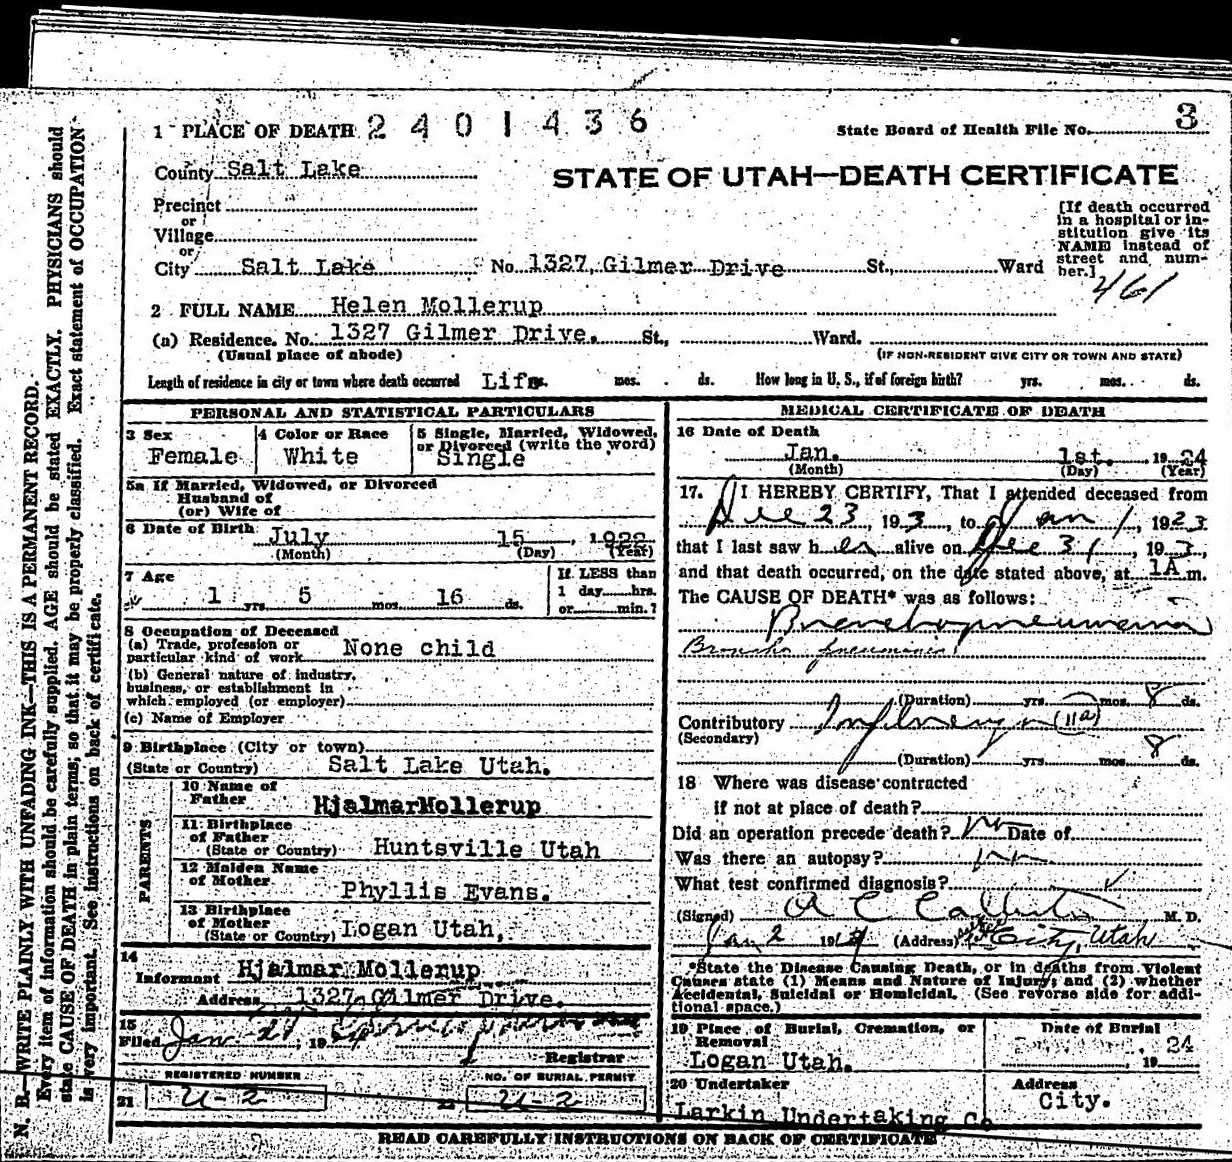 1 PLACE OF DEATH 2 4 0 1 4 3 6
State Board of Health File No. 3
County Salt Lake
STATE OF UTAH—DEATH CERTIFICATE
Precinct
or
Village
or
City Salt Lake No. 1327 Gilmer Drive St., Ward
[If death occurred in a hospital or institution give its NAME instead of street and number.]
461
2 FULL NAME Helen Mollerup
(a) Residence. No. 1327 Gilmer Drive. St., Ward.
(Usual place of abode) (IF NON-RESIDENT GIVE CITY OR TOWN AND STATE)
Length of residence in city or town where death occurred Life yrs. mos. ds. How long in U. S., if of foreign birth? yrs. mos. ds.
PERSONAL AND STATISTICAL PARTICULARS
3 Sex
Female
4 Color or Race
White
5 Single, Married, Widowed,
or Divorced (write the word)
Single
5a If Married, Widowed, or Divorced
Husband of
(or) Wife of
6 Date of Birth July 15, 1922
(Month) (Day) (Year)
7 Age
1 yrs. 5 mos. 16 ds.
If LESS than
1 day hrs.
or min.?
8 Occupation of Deceased
(a) Trade, profession or
particular kind of work None child
(b) General nature of industry,
business, or establishment in
which employed (or employer)
(c) Name of Employer
9 Birthplace (City or town)
(State or Country) Salt Lake Utah.
PARENTS
10 Name of
Father Hjalmar Mollerup
11 Birthplace
of Father
(State or Country) Huntsville Utah
12 Maiden Name
of Mother Phyllis Evans.
13 Birthplace
of Mother
(State or Country) Logan Utah,
14
Informant Hjalmar Mollerup
Address 1327 Gilmer Drive.
15
Filed Jan 19
Registrar
REGISTERED NUMBER NO. OF BURIAL PERMIT
21 U-2 22 U-2
MEDICAL CERTIFICATE OF DEATH
16 Date of Death
Jan. 1st. 1924
(Month) (Day) (Year)
17. I HEREBY CERTIFY, That I attended deceased from
Dec 23, 193, to Jan 1, 1923
that I last saw her alive on Dec 31, 193,
and that death occurred, on the date stated above, at 1A m.
The CAUSE OF DEATH* was as follows:
Bronchopneumonia
Broncho pneumonia
(Duration) yrs. mos. 8 ds.
Contributory Influenza (11a)
(Secondary)
(Duration) yrs. mos. 8 ds.
18 Where was disease contracted
if not at place of death?
Did an operation precede death? no Date of
Was there an autopsy? no
What test confirmed diagnosis?
(Signed) A C Callister M. D.
Jan 2 1924 (Address) City, Utah
*State the Disease Causing Death, or in deaths from Violent
Causes state (1) Means and Nature of Injury; and (2) whether
Accidental, Suicidal or Homicidal. (See reverse side for addi-
tional space.)
19 Place of Burial, Cremation, or
Removal
Logan Utah.
Date of Burial
24
19
20 Undertaker
Larkin Undertaking Co
Address
City.
READ CAREFULLY INSTRUCTIONS ON BACK OF CERTIFICATE
N. B.—WRITE PLAINLY WITH UNFADING INK—THIS IS A PERMANENT RECORD.
Every item of information should be carefully supplied. AGE should be stated EXACTLY. PHYSICIANS should
state CAUSE OF DEATH in plain terms; so that it may be properly classified. Exact statement of OCCUPATION
is very important. See instructions on back of certificate.